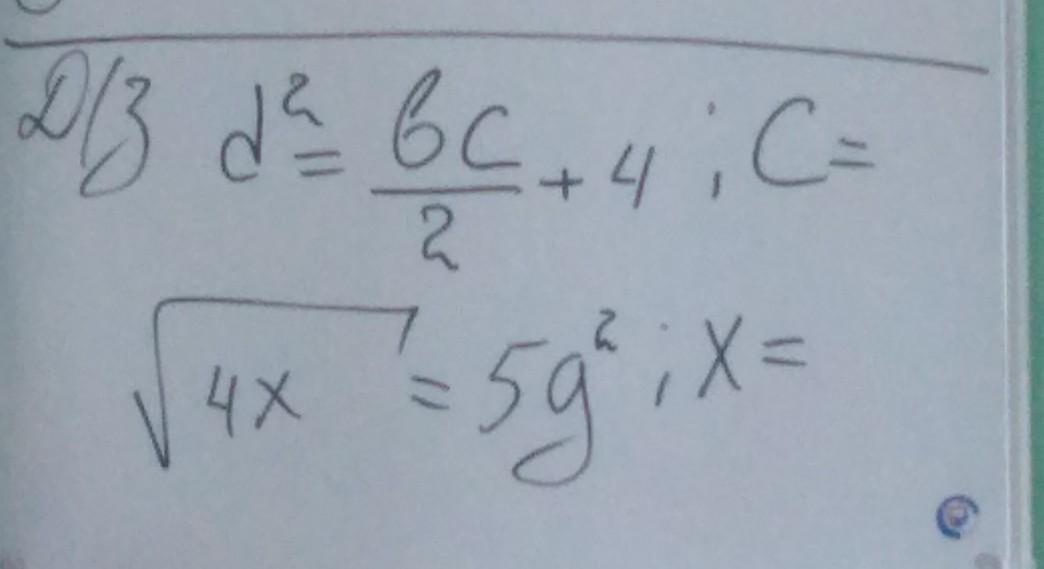 Д/З d² = 6c/2 + 4 ; C =
√4x = 5g² ; X =